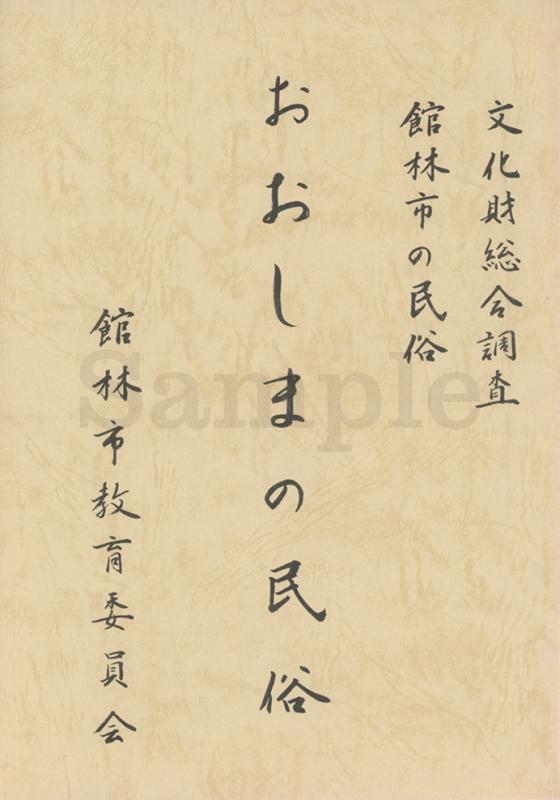 文化財総合調査
館林市の民俗
おおしまの民俗
館林市教育委員会
Sample